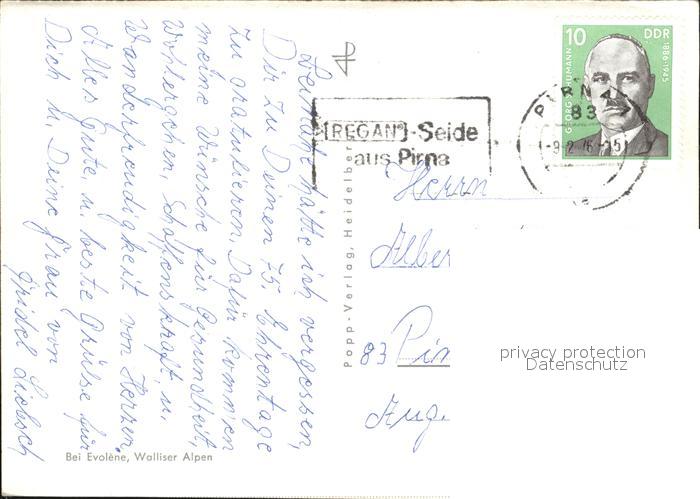 Beinahe hätte ich vergessen,
Dir zu Deinen 75. Ehrentage
zu gratulieren. Dafür kommen
meine Wünsche für Gesundheit,
Wohlergehen, Schaffenskraft, u.
Wanderfreudigkeit von Herzen.
Alles Gute u. beste Grüße für
Dich u. Deine Frau von
Bei Evolène, Walliser Alpen
Popp-Verlag, Heidelber
[REGAN]-Seide
aus Pirna
PIRNA
83
-9.2.76-15
10
DDR
GEORG SCHUMANN
1886-1945
Herrn
Alber
83 Pir
Aug.
privacy protection
Datenschutz